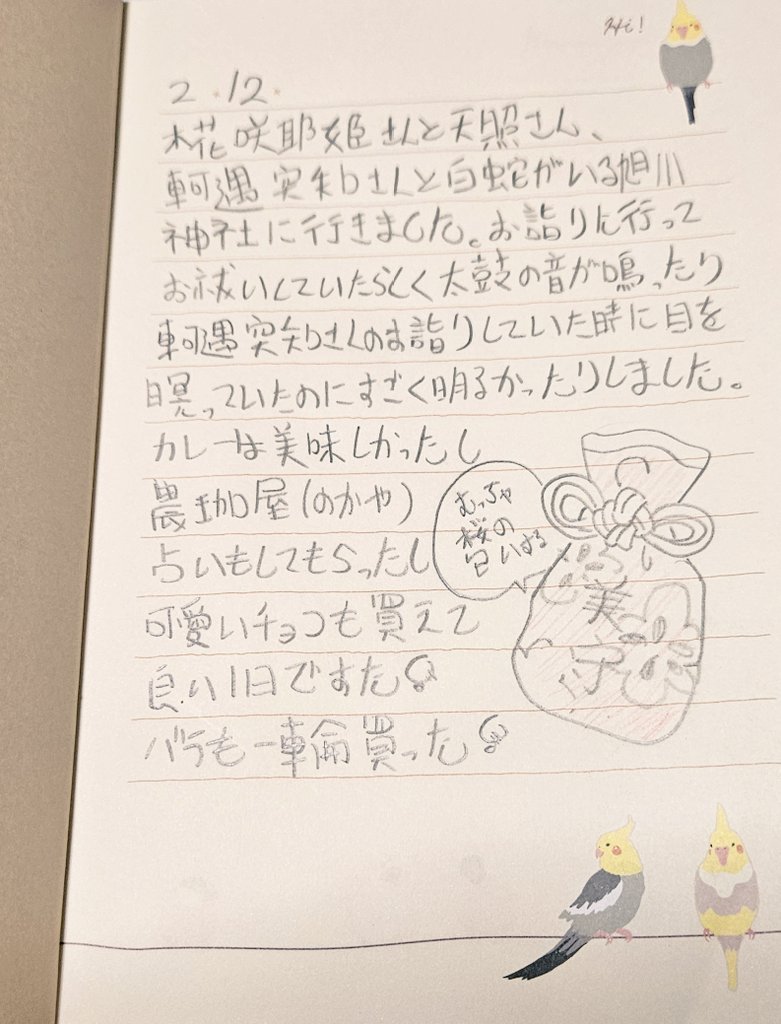 Hi!
2.12.
木花咲耶姫さんと天照さん、
軻遇突知さんと白蛇がいる旭川
神社に行きました。お詣りに行って
お祓いしていたらしく太鼓の音が鳴ったり
軻遇突知さんのお詣りしていた時に目を
瞑っていたのにすごく明るかったりしました。
カレーは美味しかったし
農珈屋(のかや)
占いもしてもらったし
可愛いチョコも買えて
良い1日ですた
バラも一輪買った
むっちゃ
桜の
匂いする
美
守